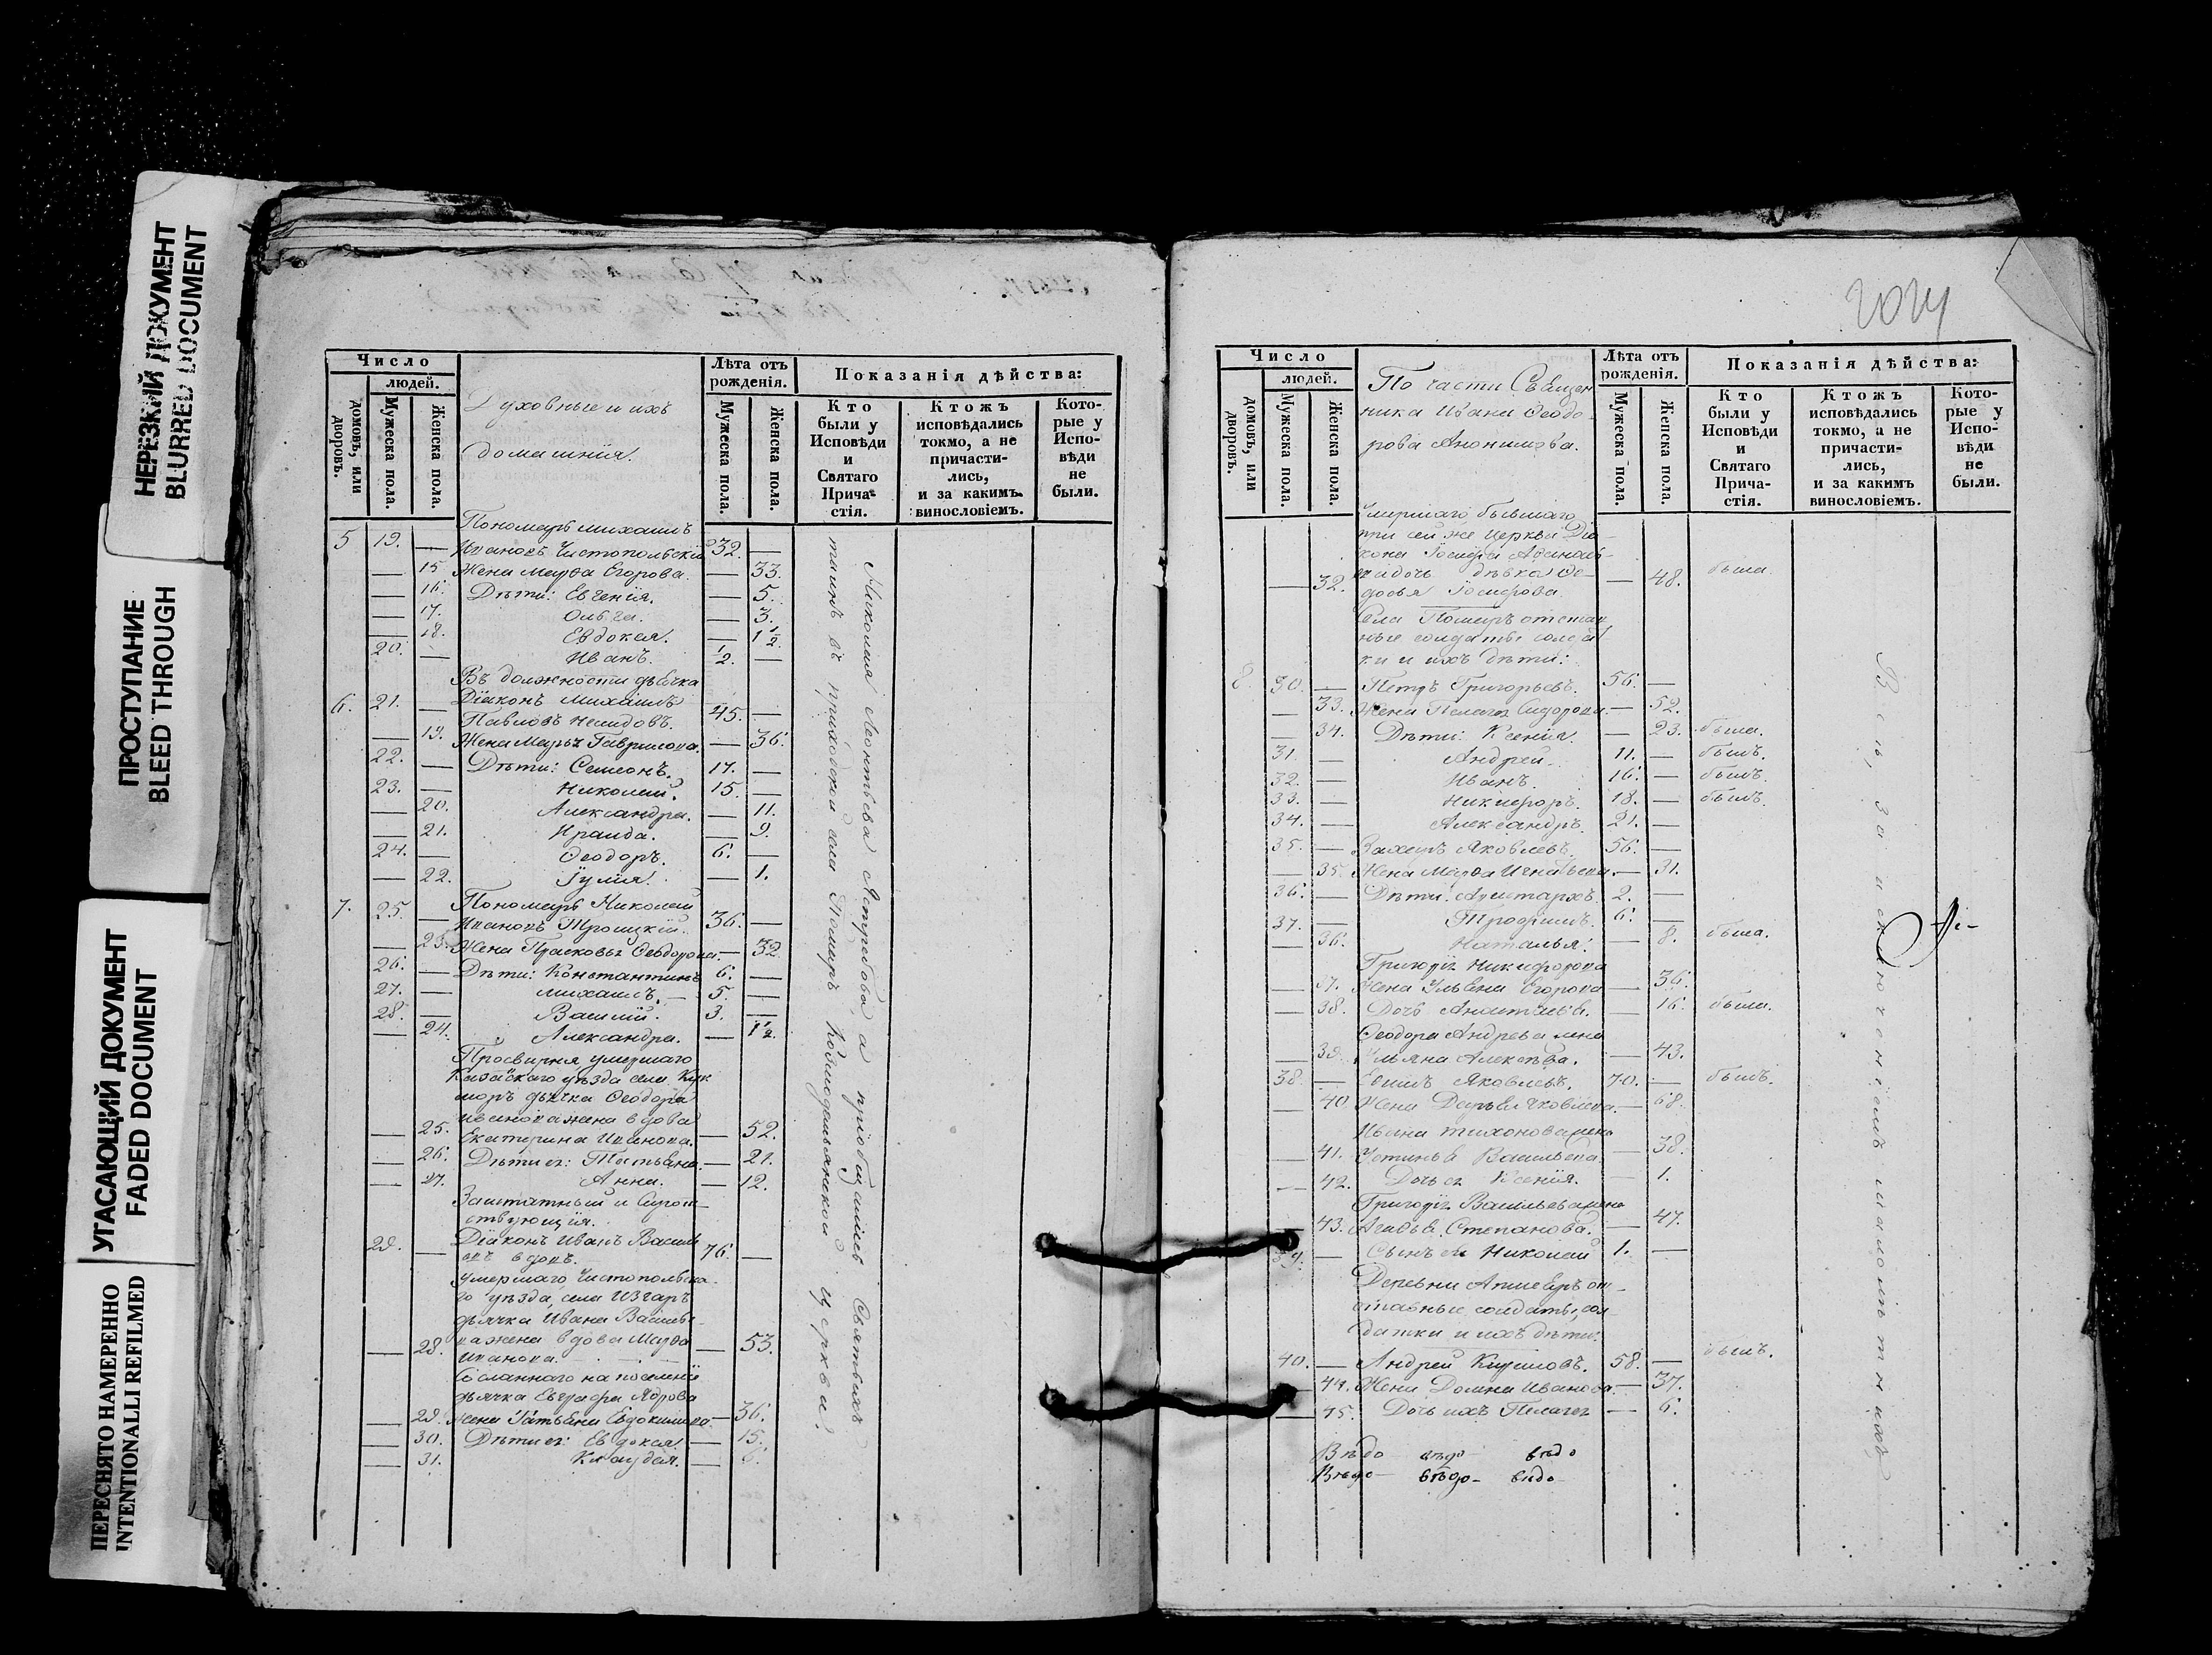 НЕРЕЗКИЙ ДОКУМЕНТ
BLURRED DOCUMENT
ПРОСТУПАНИЕ
BLEED THROUGH
УГАСАЮЩИЙ ДОКУМЕНТ
FADED DOCUMENT
ПЕРЕСНЯТО НАМЕРЕННО
INTENTIONALLI REFILMED
Число
людей.
домовъ, или дворовъ.
Мужеска пола.
Женска пола.
Духовные и ихъ
домашнія.
Лѣта отъ рожденія.
Мужеска пола.
Женска пола.
Показанія дѣйства:
Кто были у Исповѣди и Святаго Прича-стія.
Ктожъ исповѣдались токмо, а не причасти-лись, и за какимъ винословіемъ.
Кото-рые у Испо-вѣди не были.
Пономарь Михаилъ
5 19. — Ивановъ Чистопольскій 32. —
— 15 Жена Марѳа Егорова. — 33.
— 16. Дѣти: Евгенія. — 5.
— 17. Ольга. — 3.
— 18. Евдокея. — 1 1/2
20. — Иванъ. 1/2. —
Въ должности дьячка
6. 21. — Діаконъ Михаилъ
Павловъ Нелидовъ. 45. —
— 19. Жена Марья Гаврилова. — 36.
22. — Дѣти: Семенъ. 17. —
23. — Николай. 15. —
— 20. Александра. — 11.
— 21. Ираида. — 9.
24. — Ѳеодоръ. 6. —
— 22. Іулія. — 1.
7. 25. — Пономарь Николай
Ивановъ Троицкій. 36. —
— 23. Жена Прасковья Ѳеодорова. — 32.
26. — Дѣти: Константинъ 6. —
27. — Михаилъ. — 5. —
28. — Василій. 3. —
— 24. Александра. — 1 1/2.
Просвирня умершаго
Казанскаго уѣзда села Кук
моръ дьячка Ѳеодора
Иванова жена вдова
— 25. Екатерина Иванова. — 52.
— 26. Дѣти ея: Татьяна. — 21.
— 27. Анна. — 12.
Заштатный и Сирот-
ствующія.
29. — Діаконъ Иванъ Василь
евъ вдовъ. 76. —
Умершаго Чистопольска-
го уѣзда, села Изгаръ
дьячка Ивана Василье-
ва жена вдова Марѳа
— 28. Иванова. — 53.
Сосланнаго на поселеніе
дьячка Евграфа Ядрова
— 29. Жена Татьяна Евдокимова — 36.
— 30. Дѣти ея: Евдокея. — 15.
— 31. Клаудея. — 6.
Николая Леонтьева Ястребова а пріобщались Святыхъ
таинъ въ приходской села Помаръ Козмодамьянской церкви.
2024
Число
людей.
домовъ, или дворовъ.
Мужеска пола.
Женска пола.
По части Священ
ника Ивана Ѳеодо
рова Анонимова.
Лѣта отъ рожденія.
Мужеска пола.
Женска пола.
Показанія дѣйства:
Кто были у Исповѣди и Святаго Прича-стія.
Ктожъ исповѣдались токмо, а не причасти-лись, и за какимъ винословіемъ.
Кото-рые у Испо-вѣди не были.
Умершаго бывшаго
при сей же Церкви Діа
кона
— 32. дочь дѣвка Ѳе-
досья — 48. была.
Села Помаръ отстав
ные солдаты солдат
ки и ихъ дѣти:
8. 30. — Петръ Григорьевъ. 56. —
— 33. Жена Пелагея Сидорова. — 52.
— 34. Дѣти: Ксенія. — 23. была.
31. — Андрей. 11. — былъ.
32. — Иванъ. 16. — былъ.
33. — Никифоръ. 18. — былъ.
34. — Александръ. 21. —
35. — Захаръ Яковлевъ. 56. —
— 35. Жена Марѳа Игнатьева. — 31.
36. — Дѣти: Аристархъ. 2. —
37. — Трофимъ. 6. —
— 36. Наталья. — 8. была.
Григорья Никифорова
— 37. Жена Ульяна Егорова — 36.
— 38. Дочь — 16. была.
Ѳеодора Андреева жена
— 39. Ульяна Алексѣева. — 43.
38. — Яковлевъ. 70. — былъ.
— 40. Жена Дарья Яковлева. — 68.
Ивана Тихонова жена
— 41. Устинья Васильева. — 38.
— 42. Дочь ея Ксенія. — 1.
Григорья Васильева жена
— 43. Агафья Степанова. — 47.
39. — Сынъ ея Николай 1. —
Деревни Апшеяръ от-
ставные солдаты, сол-
датки и ихъ дѣти:
40. — Андрей Кириловъ. 58. — былъ.
— 44. Жена Домна Иванова. — 37.
— 45. Дочь ихъ Пелагея — 6.
Вѣдо вѣдо вѣдо
Вѣдо вѣдо вѣдо
Всѣ, за исключеніемъ малолѣтнихъ